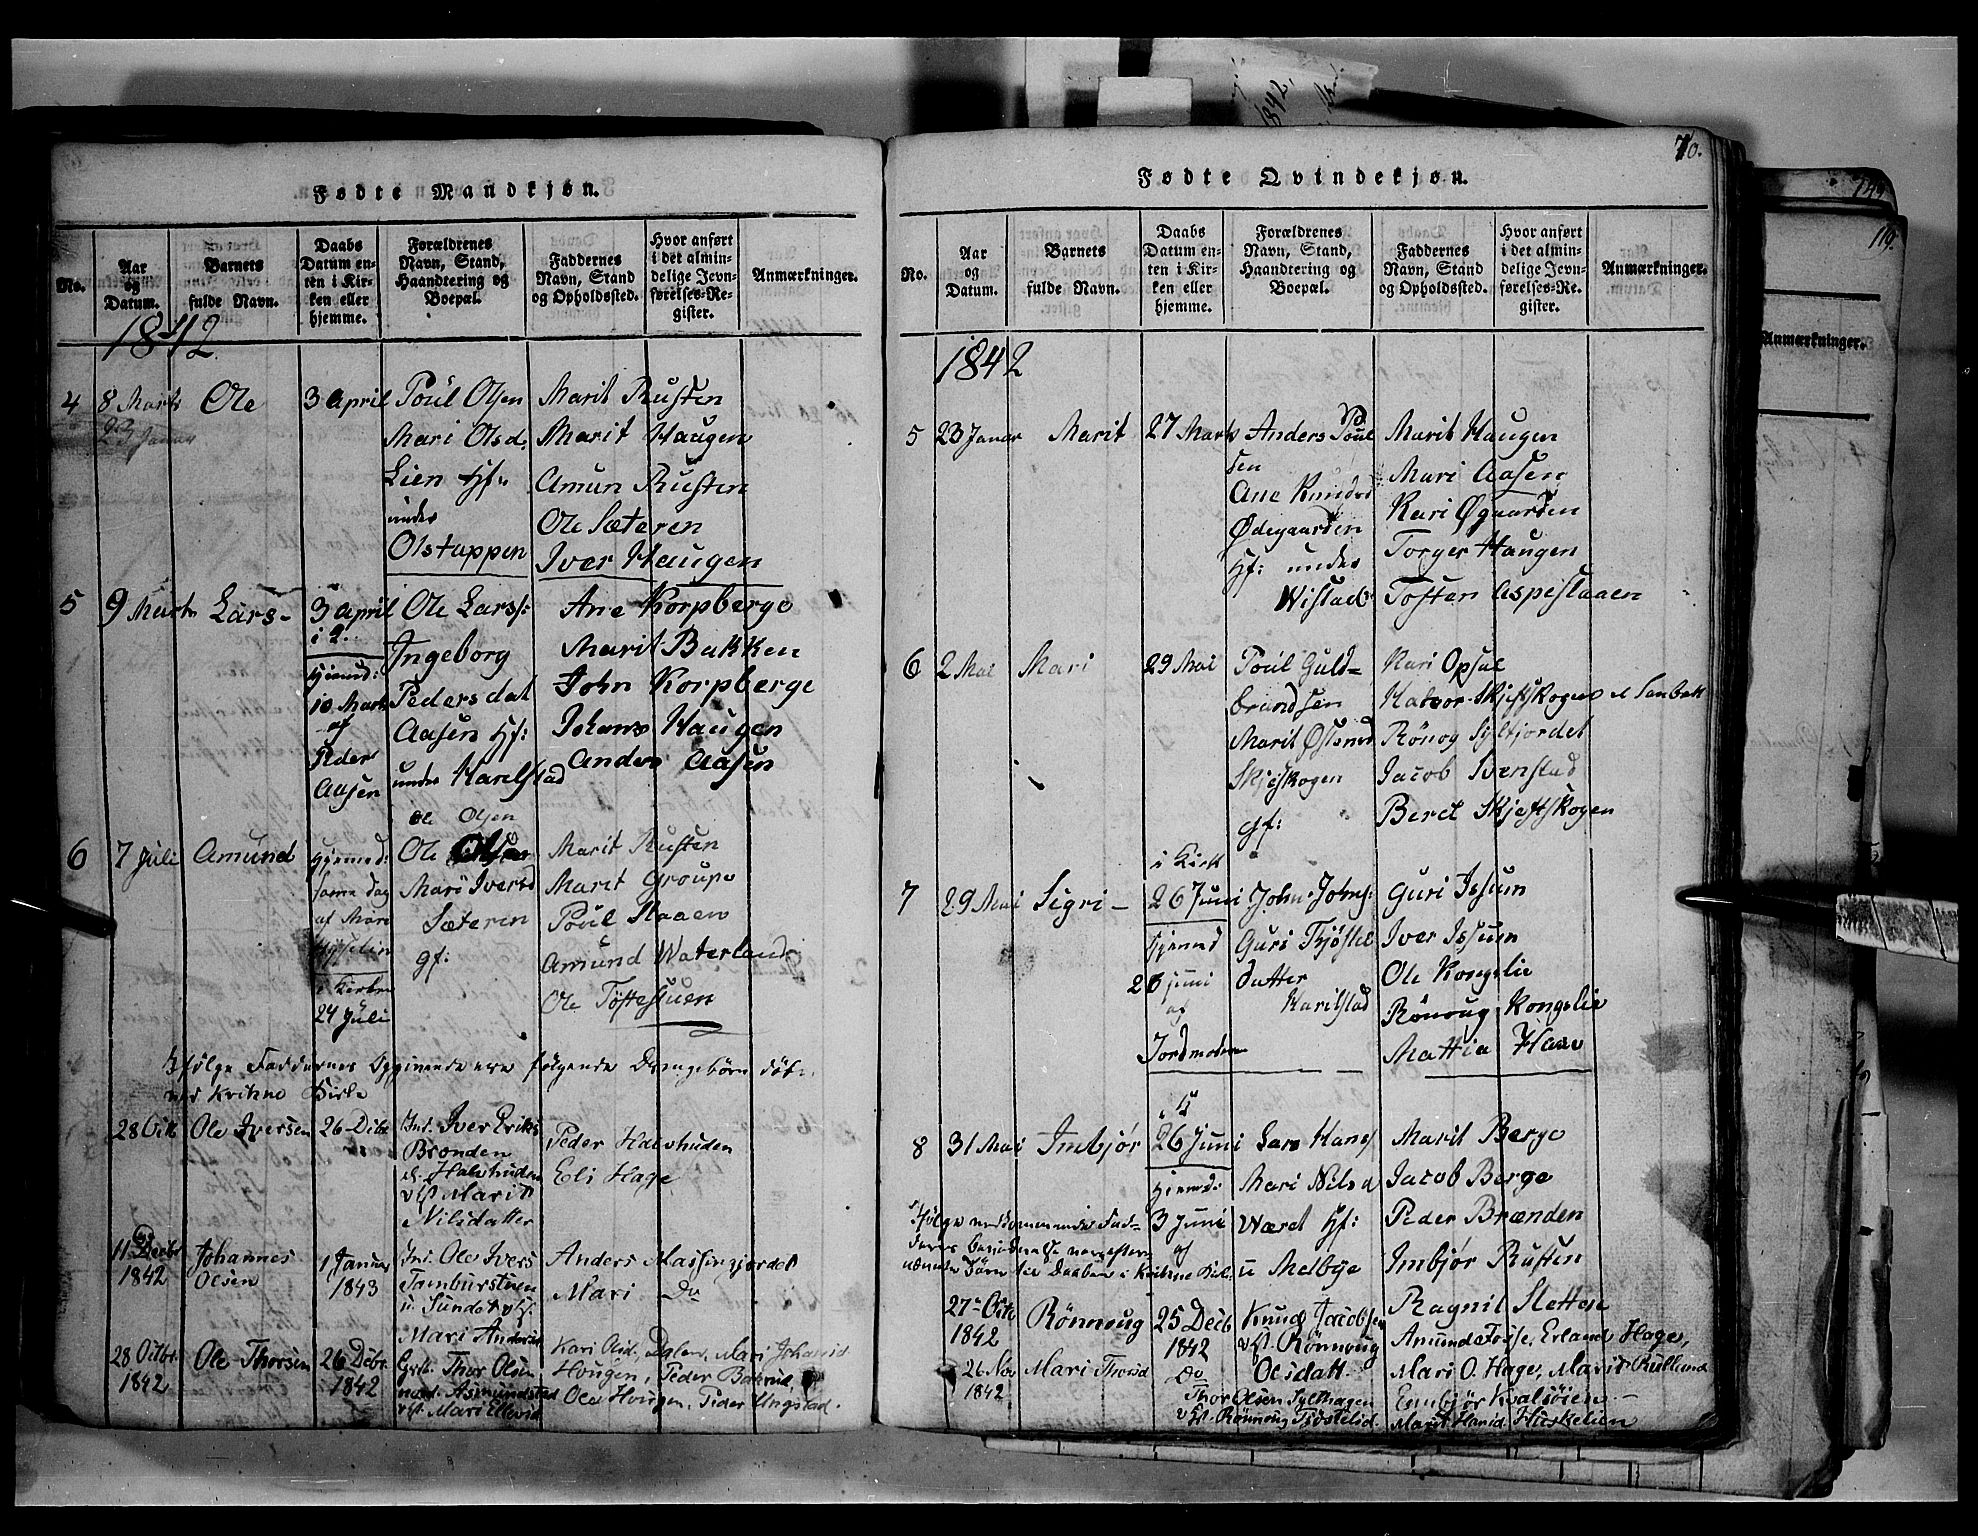 Fødte Mandkjøn.
No.
Aar
og
Datum.
Barnets
fulde Navn.
Daabs
Datum en-
ten i Kir-
ken eller
hjemme.
Forældrenes
Navn, Stand,
Haandtering og
Boepæl.
Faddernes
Navn, Stand
og Opholdssted.
Hvor anført
i det almin-
delige Jevn-
førelses-Re-
gister.
Anmærkninger.
1842
4
8 Marts
23 Januar
Ole
3 April
Poul Olsen
Mari Olsd.
Lien Hf:
under
Olstappen
Marit Rusten
Marit Haugen
Amun Rusten
Ole Sæteren
Iver Haugen
5
9 Marts
Lars-
3 April
i K.
Hjemd:
10 Marts
af
Peder
Aasen
Ole Larss:
Ingeborg
Pedersdat
Aasen Hf:
under Karilstad
Ane Korpberge
Marit Bakken
John Korpberge
Johans Haugen
Anders Aasen
6
7 Juli
Amund
Hjemmd:
samme dag
af Mari
i Kirken
24 Juli
Ole Olsen
Ole
Mari Iversd
Sæteren
gf:
Marit Rusten
Marit Groupe
Poul Staaen
Amund Waterland
Ole Toftestuen
Ifølge Faddernes Opgivende ere følgende Drengebørn døbt
ved Kvikne Kirke
28 Oct
Ole Iversen
26 Decbr
Ind. Iver Eriks
Brænden
e. Halvhuden
v/st Marit
Nilsdatter
Peder Halvhuden
Eli Hage
11 Decbr
1842
Johannes
Olsen
1 Januar
1843
Ind. Ole Ivers
Tamburstuen
u. Sundet v/st
Mari Andersd
Anders Massingjordet
Mari Do
28 Octbr
1842
Ole Thorsen
26 Decbr
1842
Grb. Thor Olsen
nord. Asmundstad
v/st. Mari Ellevsd
Kari Oid. Dalen, Mari Johansd
Hougen, Peder Bakken,
Ole Hougen, Peder Ungstad.
Fødte Qvindekjøn.
70.
No.
Aar
og
Datum.
Barnets
fulde Navn.
Daabs
Datum en-
ten i Kir-
ken eller
hjemme.
Forældrenes
Navn, Stand,
Haandtering og
Boepæl.
Faddernes
Navn, Stand
og Opholdssted.
Hvor anført
i det almin-
delige Jevn-
førelses-Re-
gister.
Anmærkninger.
1842
5
23 Januar
Marit
27 Marts
Anders Poul
sen
Ane Knudsd
Ødegaarden
Hf: under
Wistad
Marit Haugen
Mari Aasen
Kari Øgaarden
Torger Haugen
Tosten Aspestaaen
6
2 Mai
Mari
29 Mai
Poul Guld-
brandsen
Marit Østensd
Skjeskogen
gf:
Kari Opsal
Halvor Skjeftskogen
Rönog Sylfjordet
Jacob Svenstad
Beret Skjeftskogen
7
29 Mai
Sigri-
i Kirk
26 Juni
Hjemmd
26 juni
af
Jordmoderen
John Johns:
Guri Tjøstel
datter
Karilstad
Guri Issum
Iver Issum
Ole Kongslie
Rönoug Kongslie
Mattia Haav
8
31 Mai
Imbjør
i K
26 Juni
Hjemmd:
3 Juni
af
Lars Hans
Mari Nilsd
Været Hf:
u Melbye
Marit Berge
Jacob Berge
Peder Brænden
Imbjør Rusten
Ragnil Slette
Ifølge vedkommende Fad-
deres bevidnelse
nævnte Børn til Daaben i Kvikne Kirke
27 Oct
1842
Rönnoug
25 Decb
1842
Knud Jacobsen
v/st Rönnoug
Olsdatt.
Amund Fosse, Erland Hage,
Mari O. Hage, Marit Rulland
26 Nov
1842
Mari Thorsd
Do
Thor Olsen Sylthagen
v/st. Rönnoug Tjöstelsd.
Embjör Kvalsöien
Marit Havid. Huskelien
149
119.
Anmærkninger.
1842,